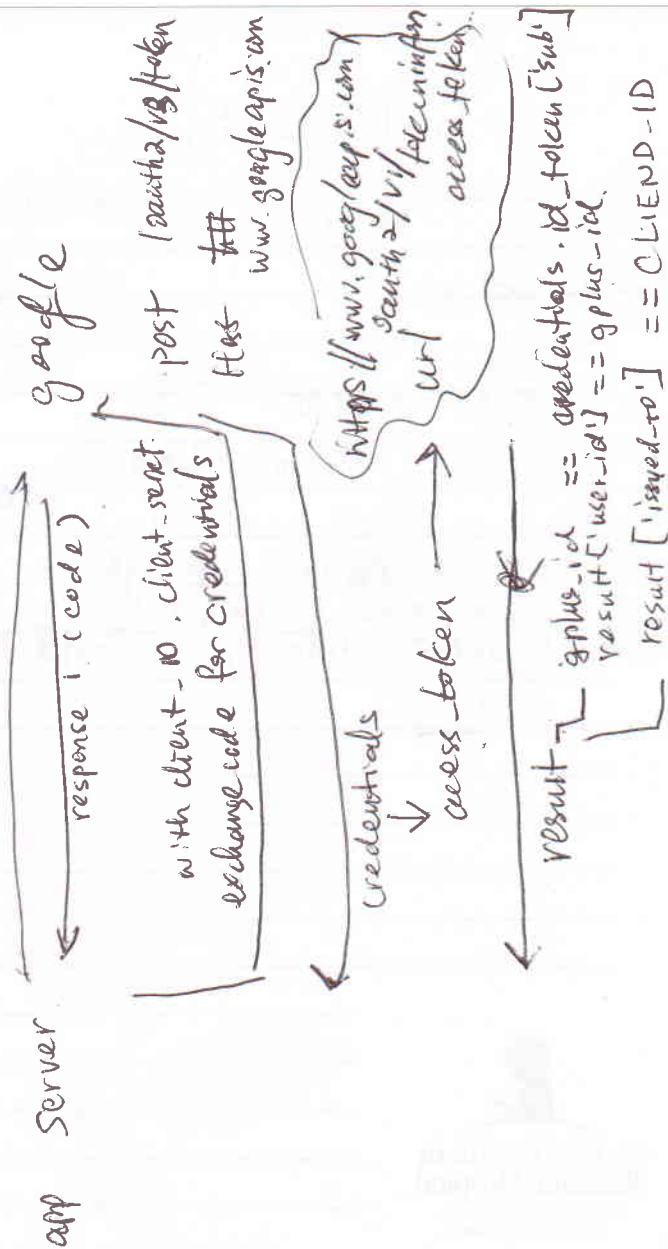 app Server
google
response i (code)
with client_ID, client_secret
exchange code for credentials
post /oauth2/v3/token
Host
www.googleapis.com
credentials
access_token
https://www.googleapis.com/
oauth2/v1/tokeninfo
access_token
url
result
gplus_id == credentials.id_token['sub']
result['user_id'] == gplus_id
result ['issued_to'] == CLIEND-ID